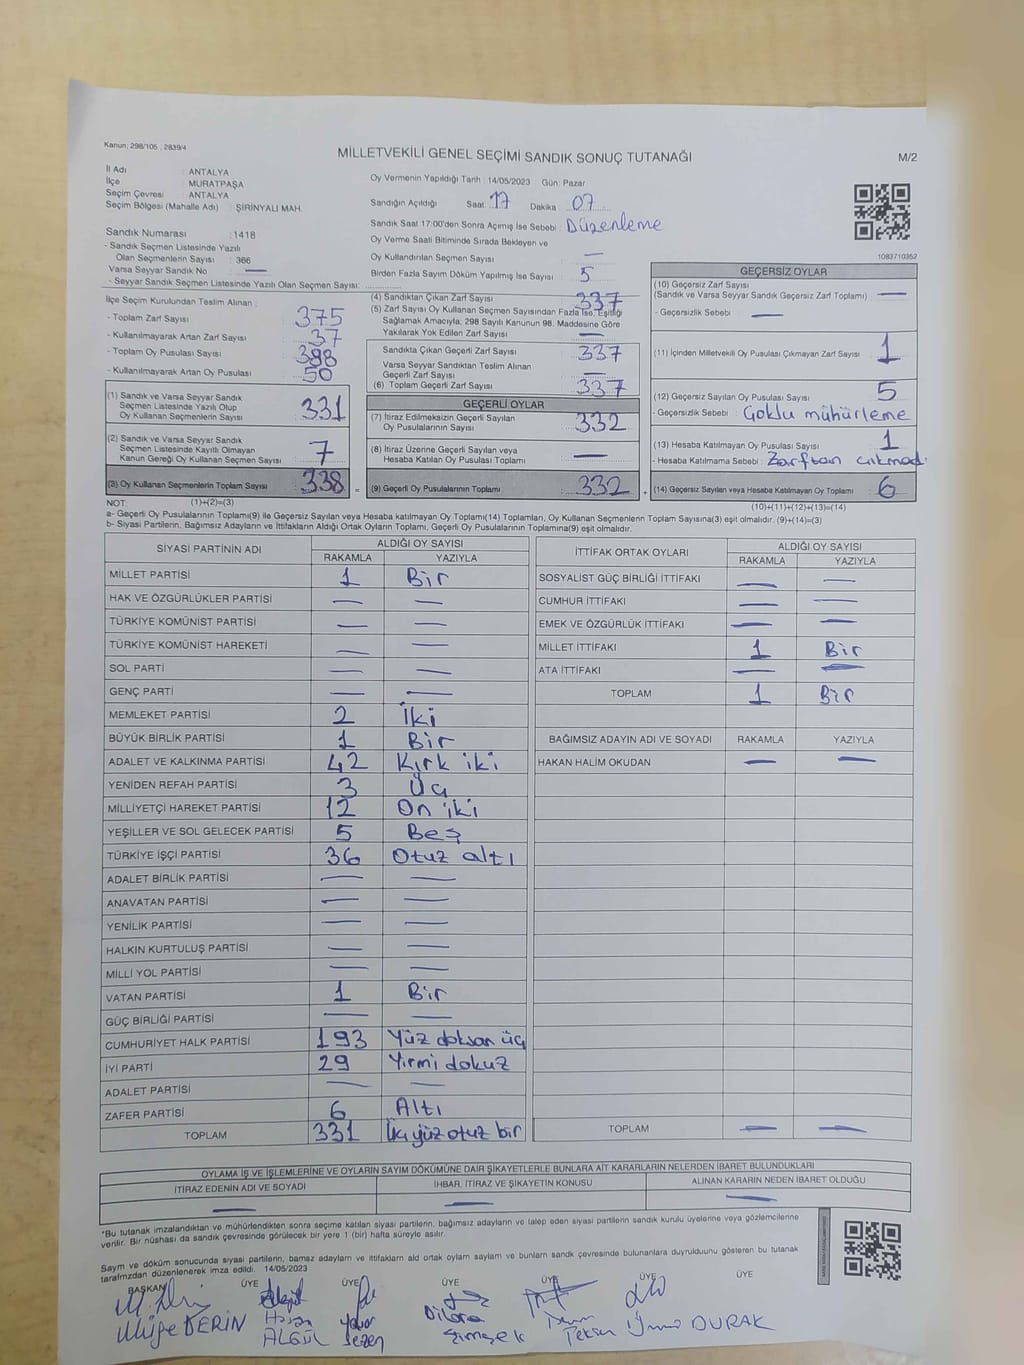 Kanun; 298/105 , 2839/4
MİLLETVEKİLİ GENEL SEÇİMİ SANDIK SONUÇ TUTANAĞI
M/2
İl Adı : ANTALYA
İlçe : MURATPAŞA
Seçim Çevresi : ANTALYA
Seçim Bölgesi (Mahalle Adı) : ŞİRİNYALI MAH.
Sandık Numarası : 1418
- Sandık Seçmen Listesinde Yazılı
Olan Seçmenlerin Sayısı : 366
Varsa Seyyar Sandık No —
- Seyyar Sandık Seçmen Listesinde Yazılı Olan Seçmen Sayısı:
Oy Vermenin Yapıldığı Tarih : 14/05/2023 Gün: Pazar
Sandığın Açıldığı Saat 17 Dakika 07
Sandık Saat 17:00'den Sonra Açımış İse Sebebi Düzenleme
Oy Verme Saati Bitiminde Sırada Bekleyen ve
Oy Kullandırılan Seçmen Sayısı —
Birden Fazla Sayım Döküm Yapılmış İse Sayısı 5
1083710352
İlçe Seçim Kurulundan Teslim Alınan
- Toplam Zarf Sayısı 375
- Kullanılmayarak Artan Zarf Sayısı 37
- Toplam Oy Pusulası Sayısı 398
- Kullanılmayarak Artan Oy Pusulası 50
(1) Sandık ve Varsa Seyyar Sandık
Seçmen Listesinde Yazılı Olup
Oy Kullanan Seçmenlerin Sayısı 331
(2) Sandık ve Varsa Seyyar Sandık
Seçmen Listesinde Kayıtlı Olmayan
Kanun Gereği Oy Kullanan Seçmen Sayısı 7
(3) Oy Kullanan Seçmenlerin Toplam Sayısı 338
(4) Sandıktan Çıkan Zarf Sayısı 337
(5) Zarf Sayısı Oy Kullanan Seçmen Sayısından Fazla İse, Eşitliği
Sağlamak Amacıyla; 298 Sayılı Kanunun 98. Maddesine Göre
Yakılarak Yok Edilen Zarf Sayısı —
Sandıkta Çıkan Geçerli Zarf Sayısı 337
Varsa Seyyar Sandıktan Teslim Alınan
Geçerli Zarf Sayısı —
(6) Toplam Geçerli Zarf Sayısı 337
GEÇERLİ OYLAR
(7) İtiraz Edilmeksizin Geçerli Sayılan
Oy Pusulalarının Sayısı 332
(8) İtiraz Üzerine Geçerli Sayılan veya
Hesaba Katılan Oy Pusulası Toplamı —
= (9) Geçerli Oy Pusulalarının Toplamı 332
GEÇERSİZ OYLAR
(10) Geçersiz Zarf Sayısı
(Sandık ve Varsa Seyyar Sandık Geçersiz Zarf Toplamı) —
- Geçersizlik Sebebi : —
(11) İçinden Milletvekili Oy Pusulası Çıkmayan Zarf Sayısı 1
(12) Geçersiz Sayılan Oy Pusulası Sayısı 5
- Geçersizlik Sebebi : Çoklu mühürleme
(13) Hesaba Katılmayan Oy Pusulası Sayısı 1
- Hesaba Katılmama Sebebi Zarftan çıkmad.
+ (14) Geçersiz Sayılan veya Hesaba Katılmayan Oy Toplamı 6
NOT: (1)+(2)=(3)
(10)+(11)+(12)+(13)=(14)
a- Geçerli Oy Pusulalarının Toplamı(9) ile Geçersiz Sayılan veya Hesaba katılmayan Oy Toplamı(14) Toplamları, Oy Kullanan Seçmenlerin Toplam Sayısına(3) eşit olmalıdır. (9)+(14)=(3)
b- Siyasi Partilerin, Bağımsız Adayların ve İttifakların Aldığı Ortak Oyların Toplamı, Geçerli Oy Pusulalarının Toplamına(9) eşit olmalıdır.
SİYASİ PARTİNİN ADI ALDIĞI OY SAYISI
RAKAMLA YAZIYLA
MİLLET PARTİSİ 1 Bir
HAK VE ÖZGÜRLÜKLER PARTİSİ — —
TÜRKİYE KOMÜNİST PARTİSİ — —
TÜRKİYE KOMÜNİST HAREKETİ — —
SOL PARTİ — —
GENÇ PARTİ — —
MEMLEKET PARTİSİ 2 İki
BÜYÜK BİRLİK PARTİSİ 1 Bir
ADALET VE KALKINMA PARTİSİ 42 Kırk iki
YENİDEN REFAH PARTİSİ 3 Üç
MİLLİYETÇİ HAREKET PARTİSİ 12 On iki
YEŞİLLER VE SOL GELECEK PARTİSİ 5 Beş
TÜRKİYE İŞÇİ PARTİSİ 36 Otuz altı
ADALET BİRLİK PARTİSİ — —
ANAVATAN PARTİSİ — —
YENİLİK PARTİSİ — —
HALKIN KURTULUŞ PARTİSİ — —
MİLLİ YOL PARTİSİ — —
VATAN PARTİSİ 1 Bir
GÜÇ BİRLİĞİ PARTİSİ — —
CUMHURİYET HALK PARTİSİ 193 Yüz doksan üç
İYİ PARTİ 29 Yirmi dokuz
ADALET PARTİSİ — —
ZAFER PARTİSİ 6 Altı
TOPLAM 331 Üç yüz otuz bir
İTTİFAK ORTAK OYLARI ALDIĞI OY SAYISI
RAKAMLA YAZIYLA
SOSYALİST GÜÇ BİRLİĞİ İTTİFAKI — —
CUMHUR İTTİFAKI — —
EMEK VE ÖZGÜRLÜK İTTİFAKI — —
MİLLET İTTİFAKI 1 Bir
ATA İTTİFAKI — —
TOPLAM 1 Bir
BAĞIMSIZ ADAYIN ADI VE SOYADI RAKAMLA YAZIYLA
HAKAN HALİM OKUDAN — —
TOPLAM — —
OYLAMA İŞ VE İŞLEMLERİNE VE OYLARIN SAYIM DÖKÜMÜNE DAİR ŞİKAYETLERLE BUNLARA AİT KARARLARIN NELERDEN İBARET BULUNDUKLARI
İTİRAZ EDENİN ADI VE SOYADI İHBAR, İTİRAZ VE ŞİKAYETİN KONUSU ALINAN KARARIN NEDEN İBARET OLDUĞU
— — —
*Bu tutanak imzalandıktan ve mühürlendikten sonra seçime katılan siyasi partilerin, bağımsız adayların ve talep eden siyasi partilerin sandık kurulu üyelerine veya gözlemcilerine
verilir. Bir nüshası da sandık çevresinde görülecek bir yere 1 (bir) hafta süreyle asılır.
Sayım ve döküm sonucunda siyasi partilerin, adayların ve ittifakların oyların ve bunların sandık çevresinde bulunanlara duyrulduğunu gösteren bu tutanak
tarafımzdan düzenlenerek imza edildi. 14/05/2023
BAŞKAN ÜYE ÜYE ÜYE ÜYE ÜYE ÜYE
Müge DERİN
Hasan ALGÜL
Sezen
Dilara Şimşek
Tekin
DURAK